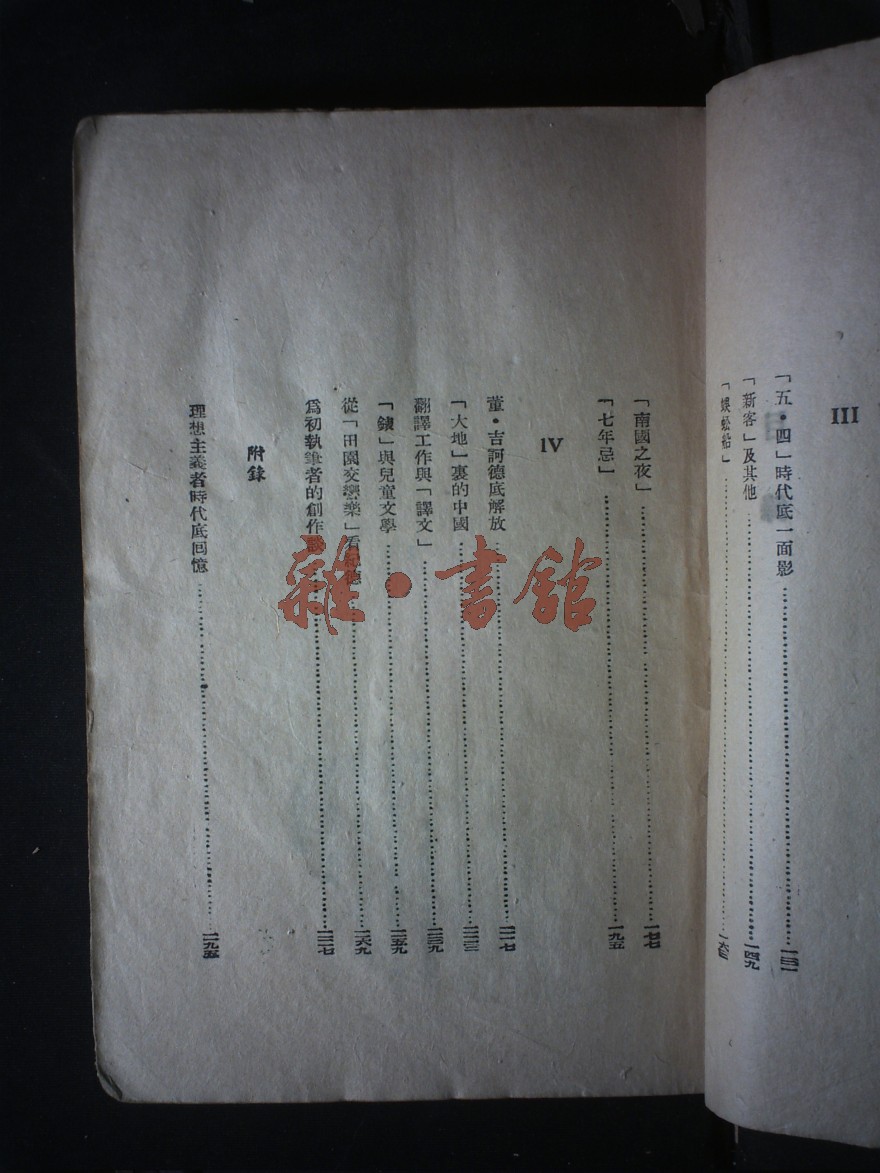 III
「五・四」時代底一面影……一三一
「新客」及其他……一四九
「蜈蚣船」……一六三
「南國之夜」……一七七
「七年忌」……一九五
IV
董・吉訶德底解放……二一七
「大地」裏的中國……二二三
翻譯工作與「譯文」……二三九
「錶」與兒童文學……二五九
從「田園交響樂」看紀德……二六九
爲初執筆者的創作談……
附錄
理想主義者時代底回憶……二九五
雜・書館